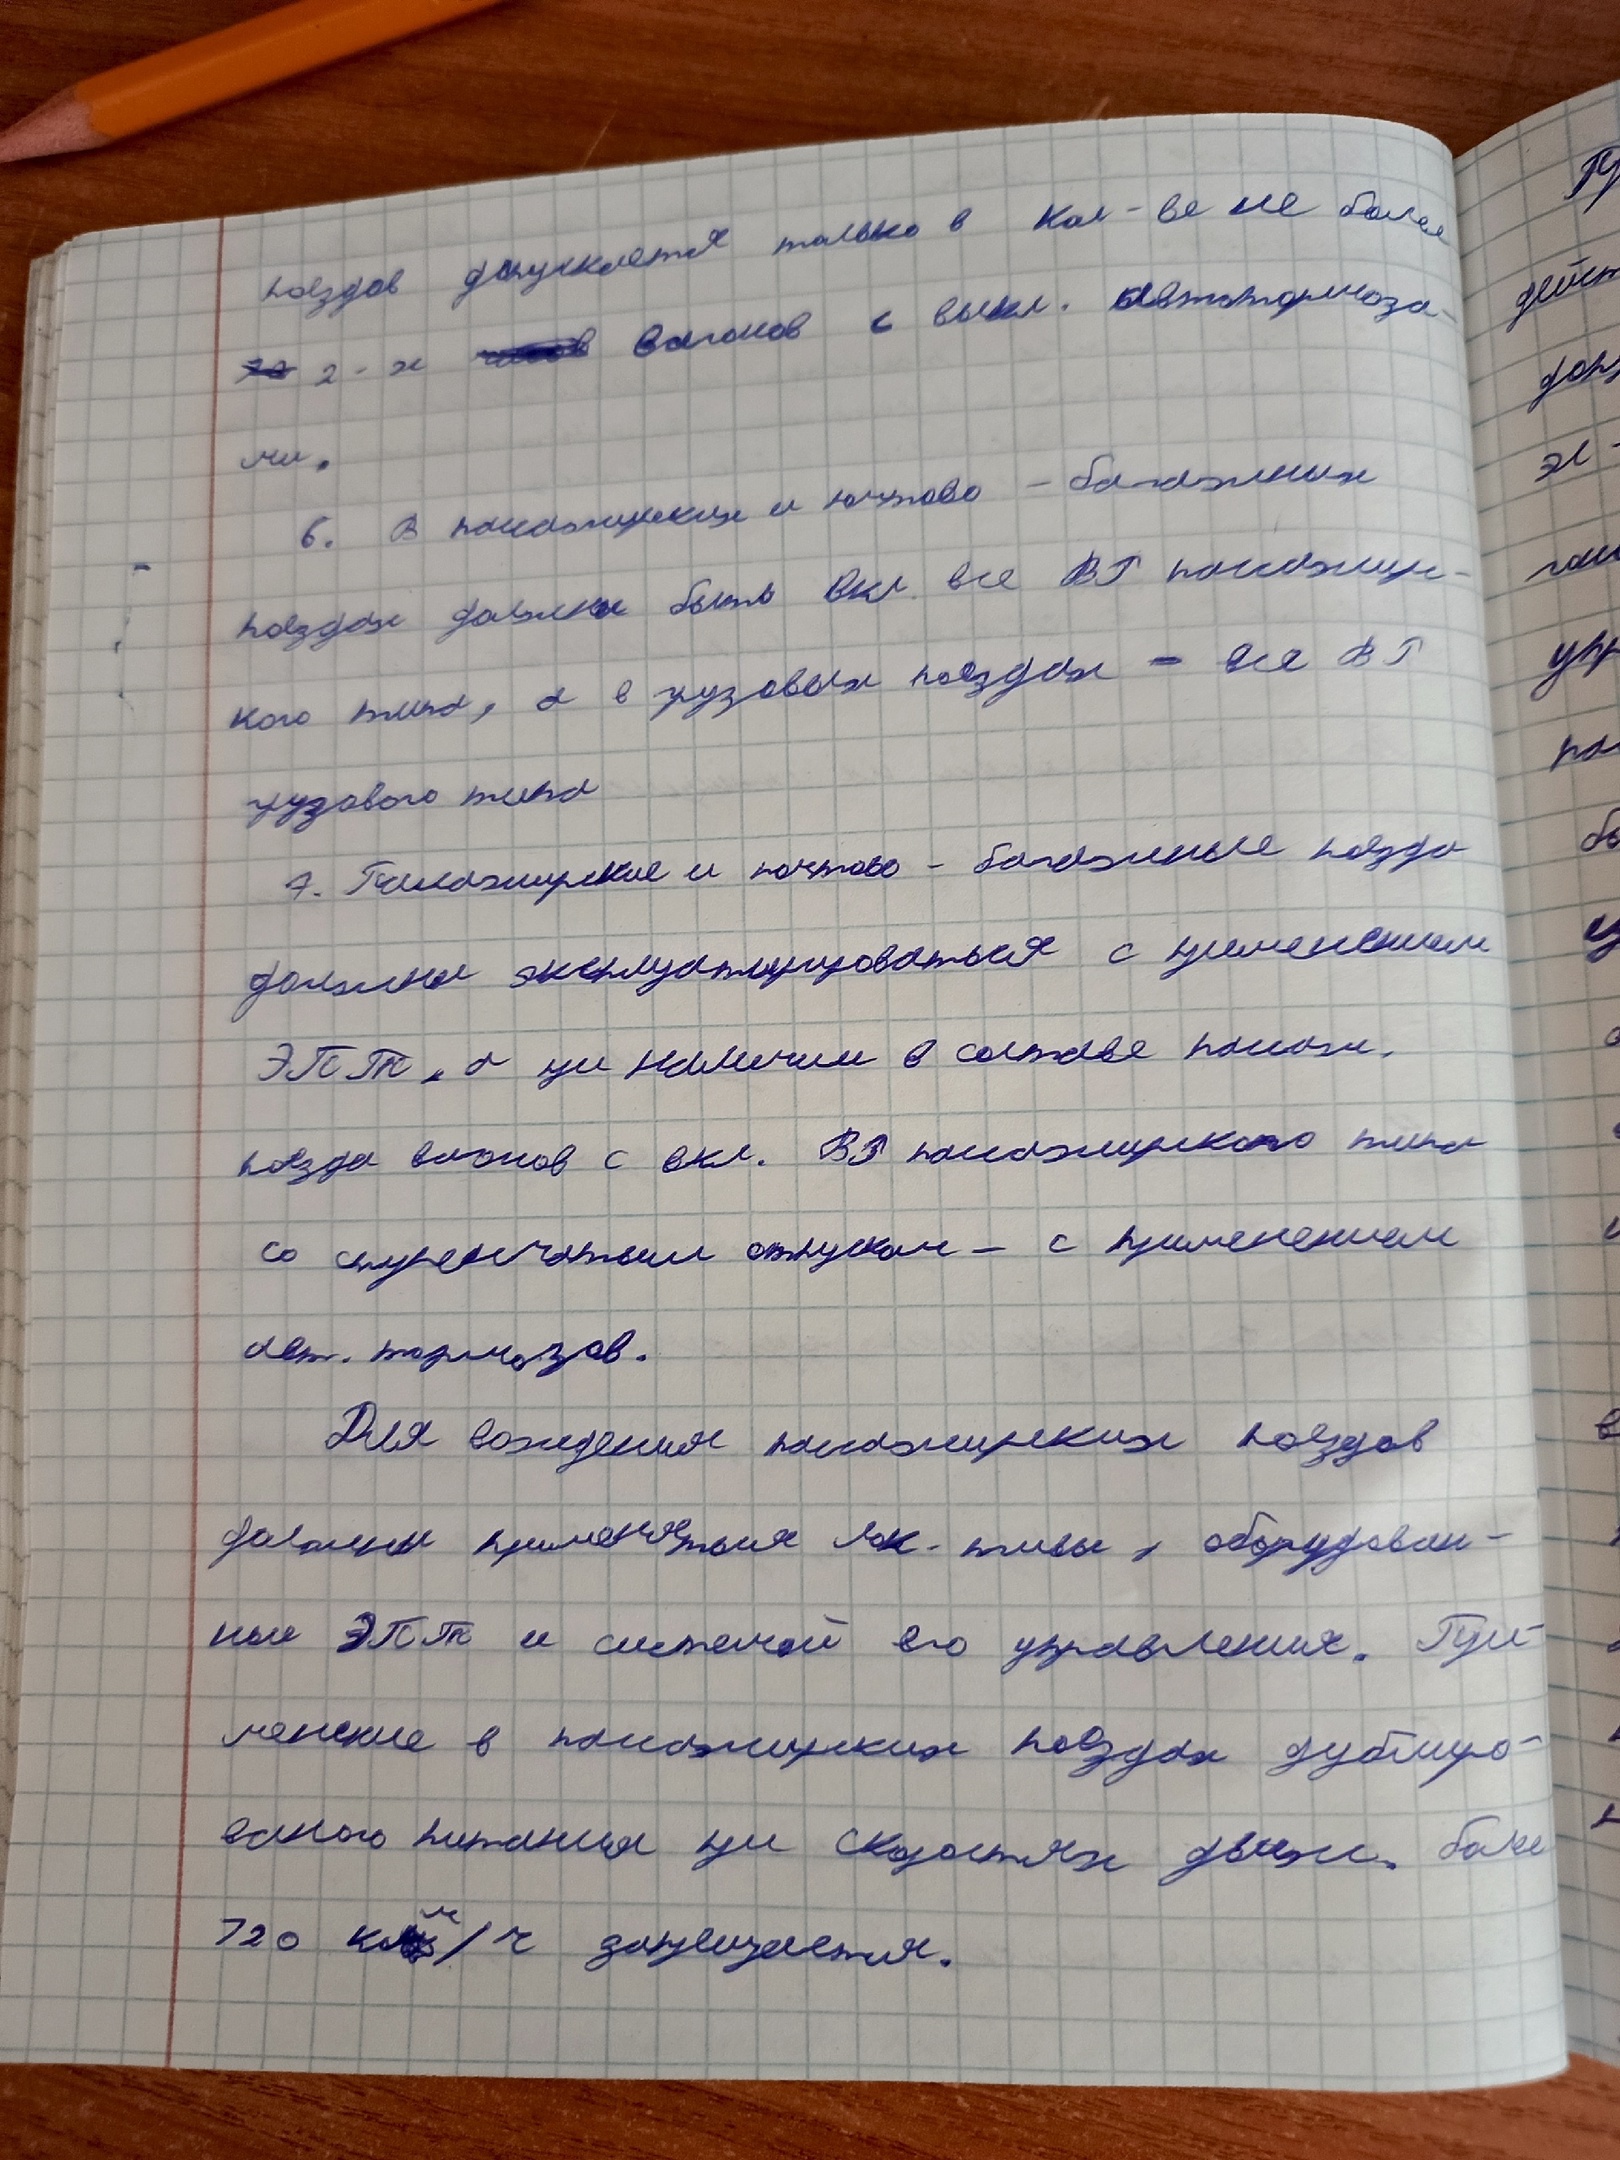 поездов допускается только в кол-ве не более
2-х вагонов с выкл. автотормоза-
ми.
6. В пассажирских и почтово-багажных
поездах должны быть вкл. все ВР пассажирс-
кого типа, а в грузовых поездах - все ВР
грузового типа
7. Пассажирские и почтово-багажные поезда
должны эксплуатироваться с применением
ЭПТ, а при наличии в составе пассаж.
поезда вагонов с вкл. ВР пассажирского типа
со ступенчатым отпуском - с применением
авт. тормозов.
Для вождения пассажирских поездов
должны применяться лок-тивы, оборудован-
ные ЭПТ и системой его управления. При-
менение в пассажирских поездах дублиро-
ванного питания при скоростях движ. более
120 км/ч запрещается.